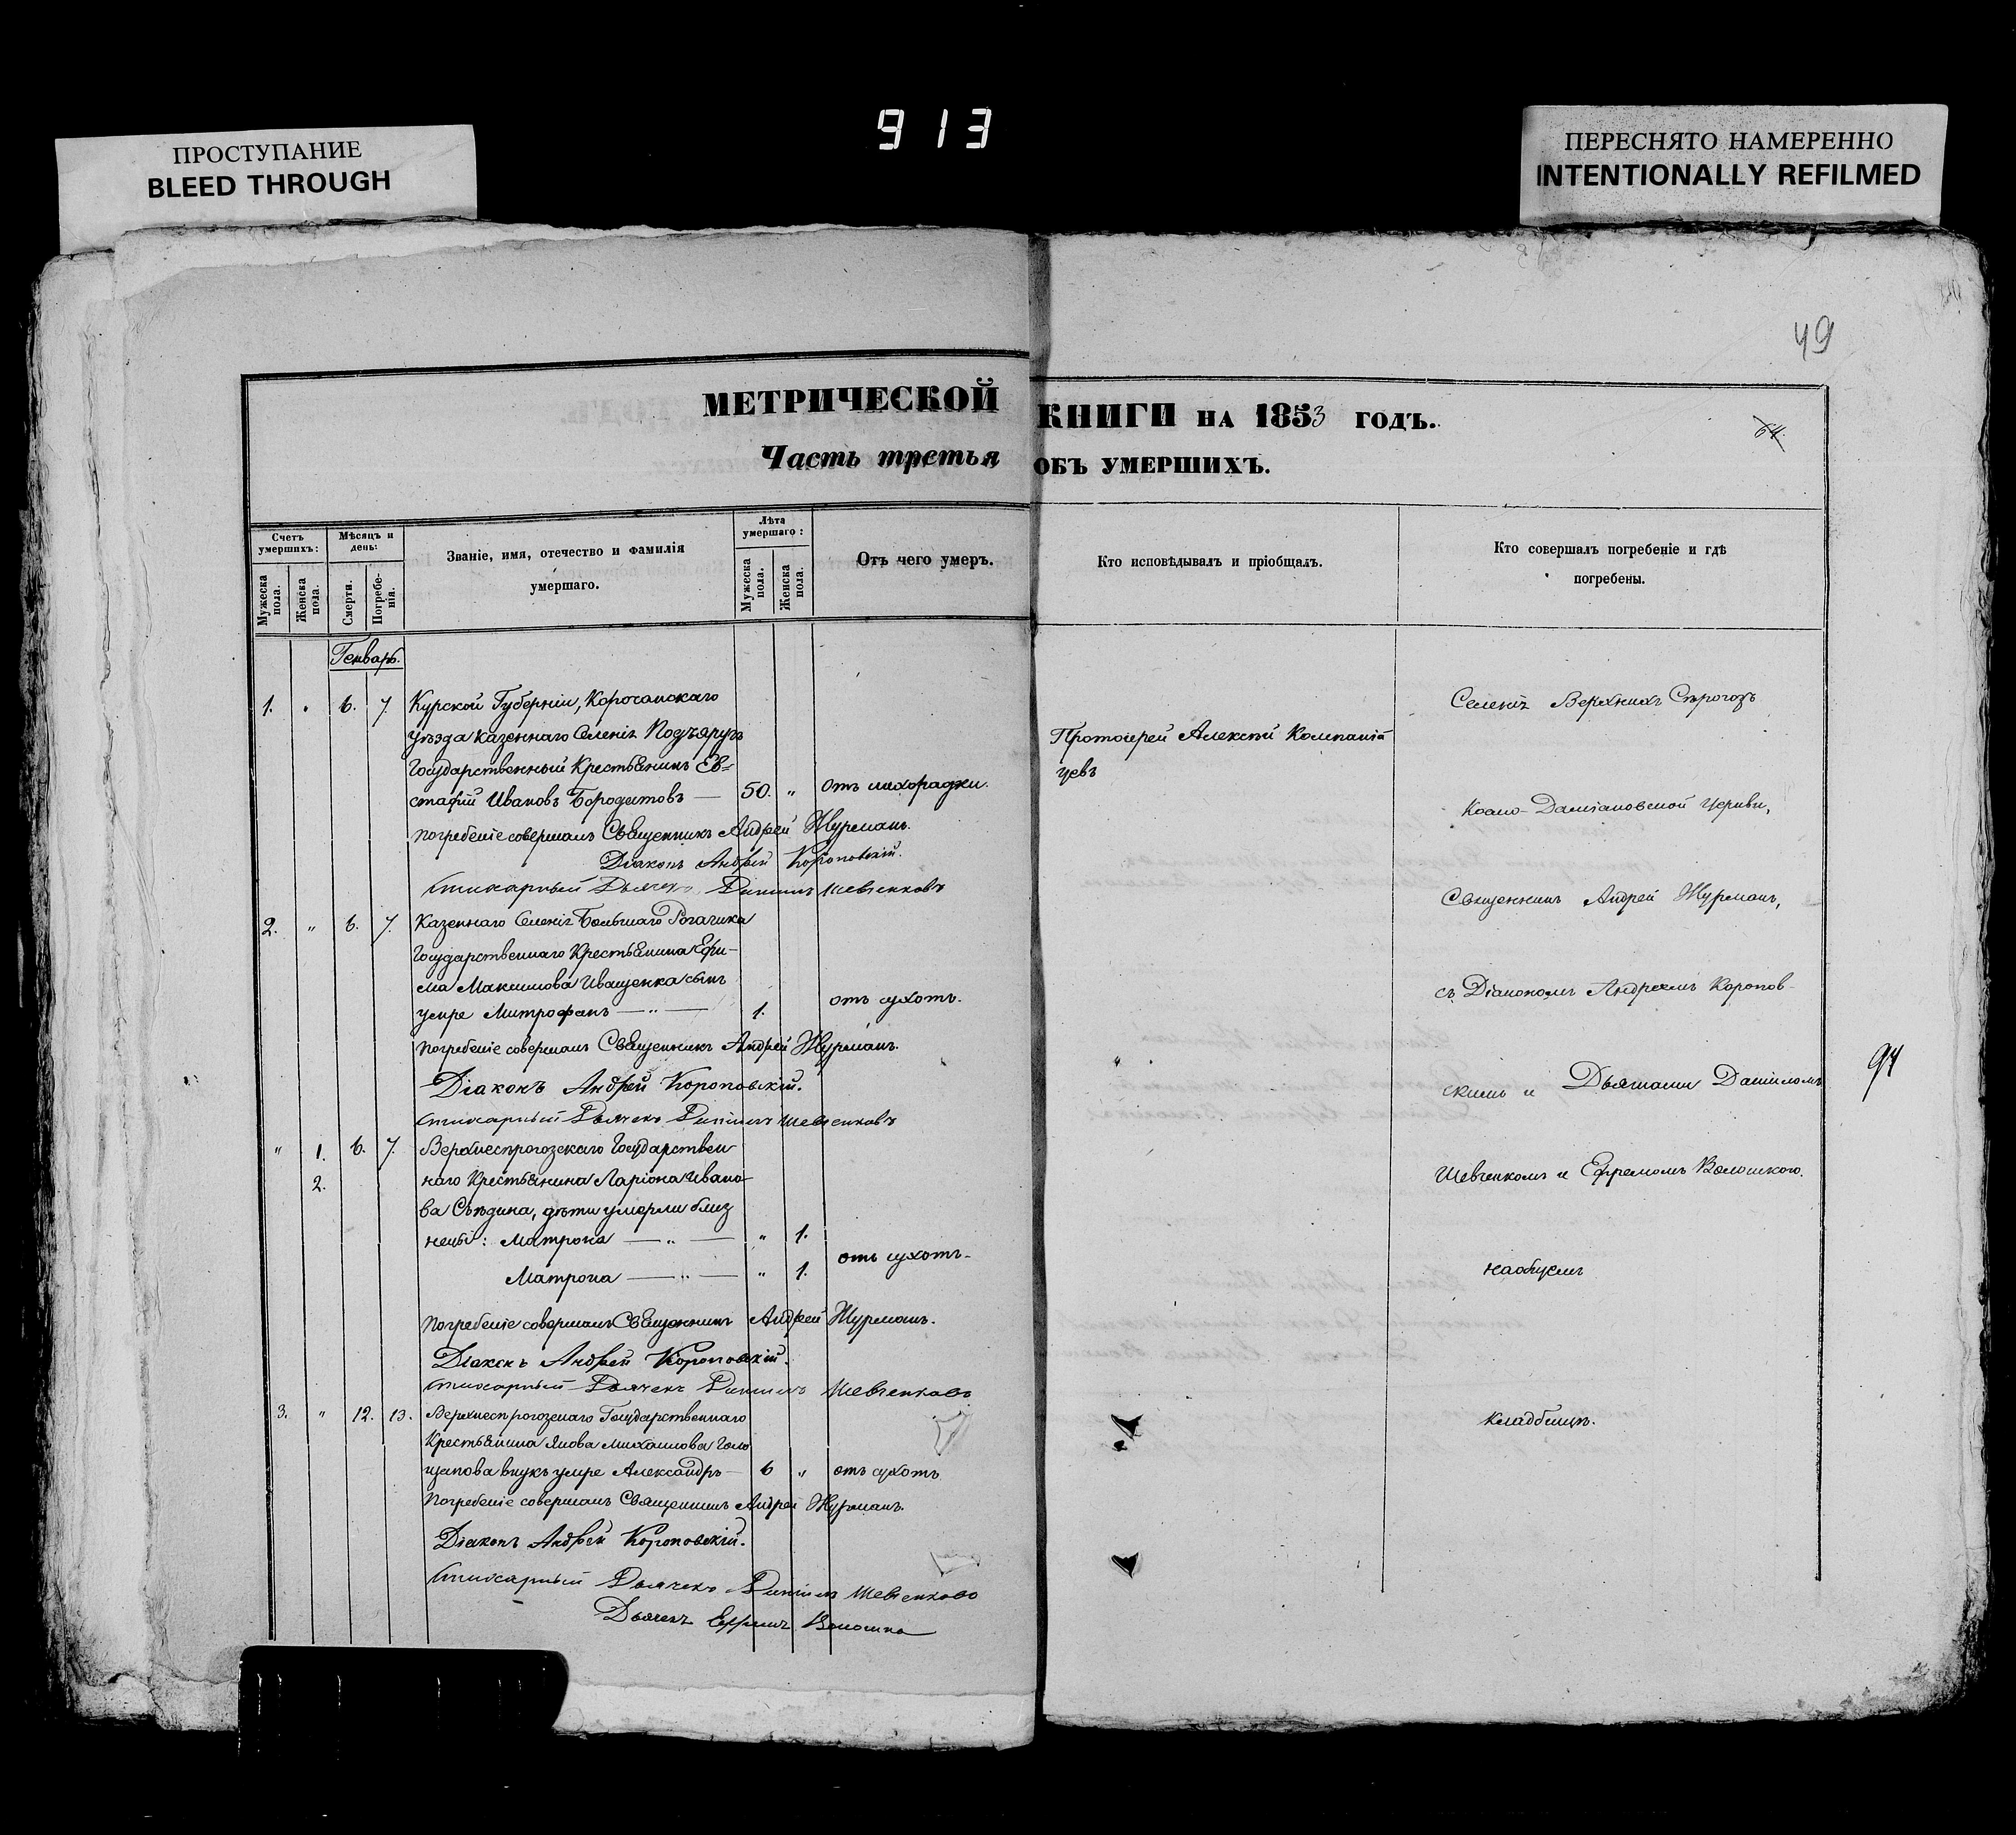 913
ПРОСТУПАНИЕ
BLEED THROUGH
ПЕРЕСНЯТО НАМЕРЕННО
INTENTIONALLY REFILMED
49
МЕТРИЧЕСКОЙ КНИГИ НА 1853 ГОДЪ.
64.
Часть третья ОБЪ УМЕРШИХЪ.
Счетъ умершихъ:
Мужеска пола.
Женска пола.
Мѣсяцъ и день:
Смерти.
Погребенія.
Званіе, имя, отечество и фамилія
умершаго.
Лѣта умершаго:
Мужеска пола.
Женска пола.
Отъ чего умеръ.
Кто исповѣдывалъ и пріобщалъ.
Кто совершалъ погребеніе и гдѣ
погребены.
Генварь.
1. " 6. 7. Курской Губерніи, Корочанскаго
уѣзда казеннаго Селенія Подъяругъ
Государственный Крестьянинъ Ев=
стафій Ивановъ Бородатовъ — 50. " отъ лихорадки.
погребеніе совершалъ Священникъ Андрей Журманъ.
Діаконъ Андрей Короповскій.
Стихарный Дьячекъ Даніилъ Шевченковъ
2. " 6. 7. Казеннаго Селенія Большаго Рогачика
Государственнаго Крестьянина Ефи-
ма Максимова Иващенка сынъ
умре Митрофанъ — " — 1. отъ сухотъ.
Погребеніе совершалъ Священникъ Андрей Журманъ.
Діаконъ Андрей Короповскій.
Стихарный Дьячекъ Даніилъ Шевченковъ
" 1. 6. 7. Верхнесѣрогозскаго Государствен
2. наго Крестьянина Ларіона Ивано-
ва Сѣдина, дѣти умерли близ
нецы: Матрона — " — " 1.
отъ сухотъ-
Матрона — " — " 1.
Погребеніе совершалъ Священникъ Андрей Журманъ.
Діаконъ Андрей Короповскій.
Стихарный Дьячекъ Даніилъ Шевченковъ
3. " 12. 13. Верхнесѣрогозскаго Государственнаго
Крестьянина Якова Михайлова Голо
щапова внукъ умре Александръ — 6 " отъ сухотъ
Погребеніе совершалъ Священникъ Андрей Журманъ.
Діаконъ Андрей Короповскій.
Стихарный Дьячекъ Даніилъ Шевченковъ
Дьячекъ Ефремъ Волошко
Протоіерей Алексѣй Компаній
цевъ
"
Селенія Верхнихъ Сѣрогозъ
Космо-Даміановской Церкви,
Священникъ Андрей Журманъ,
съ Діакономъ Андреемъ Коропов-
скимъ и Дьячками Даніиломъ
Шевченкомъ и Ефремомъ Волошкою.
на общемъ
кладбищѣ.
94